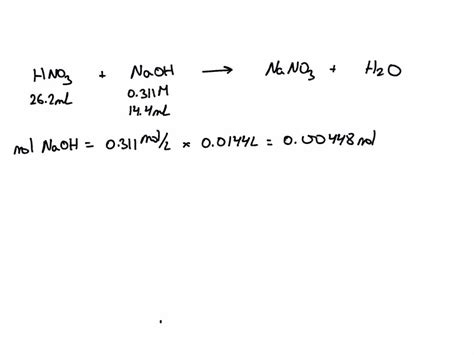 HNO₃ + NaOH → NaNO₃ + H₂O
26.2mL 0.311M
14.4mL
mol NaOH = 0.311 mol/L × 0.0144L = 0.00448 mol